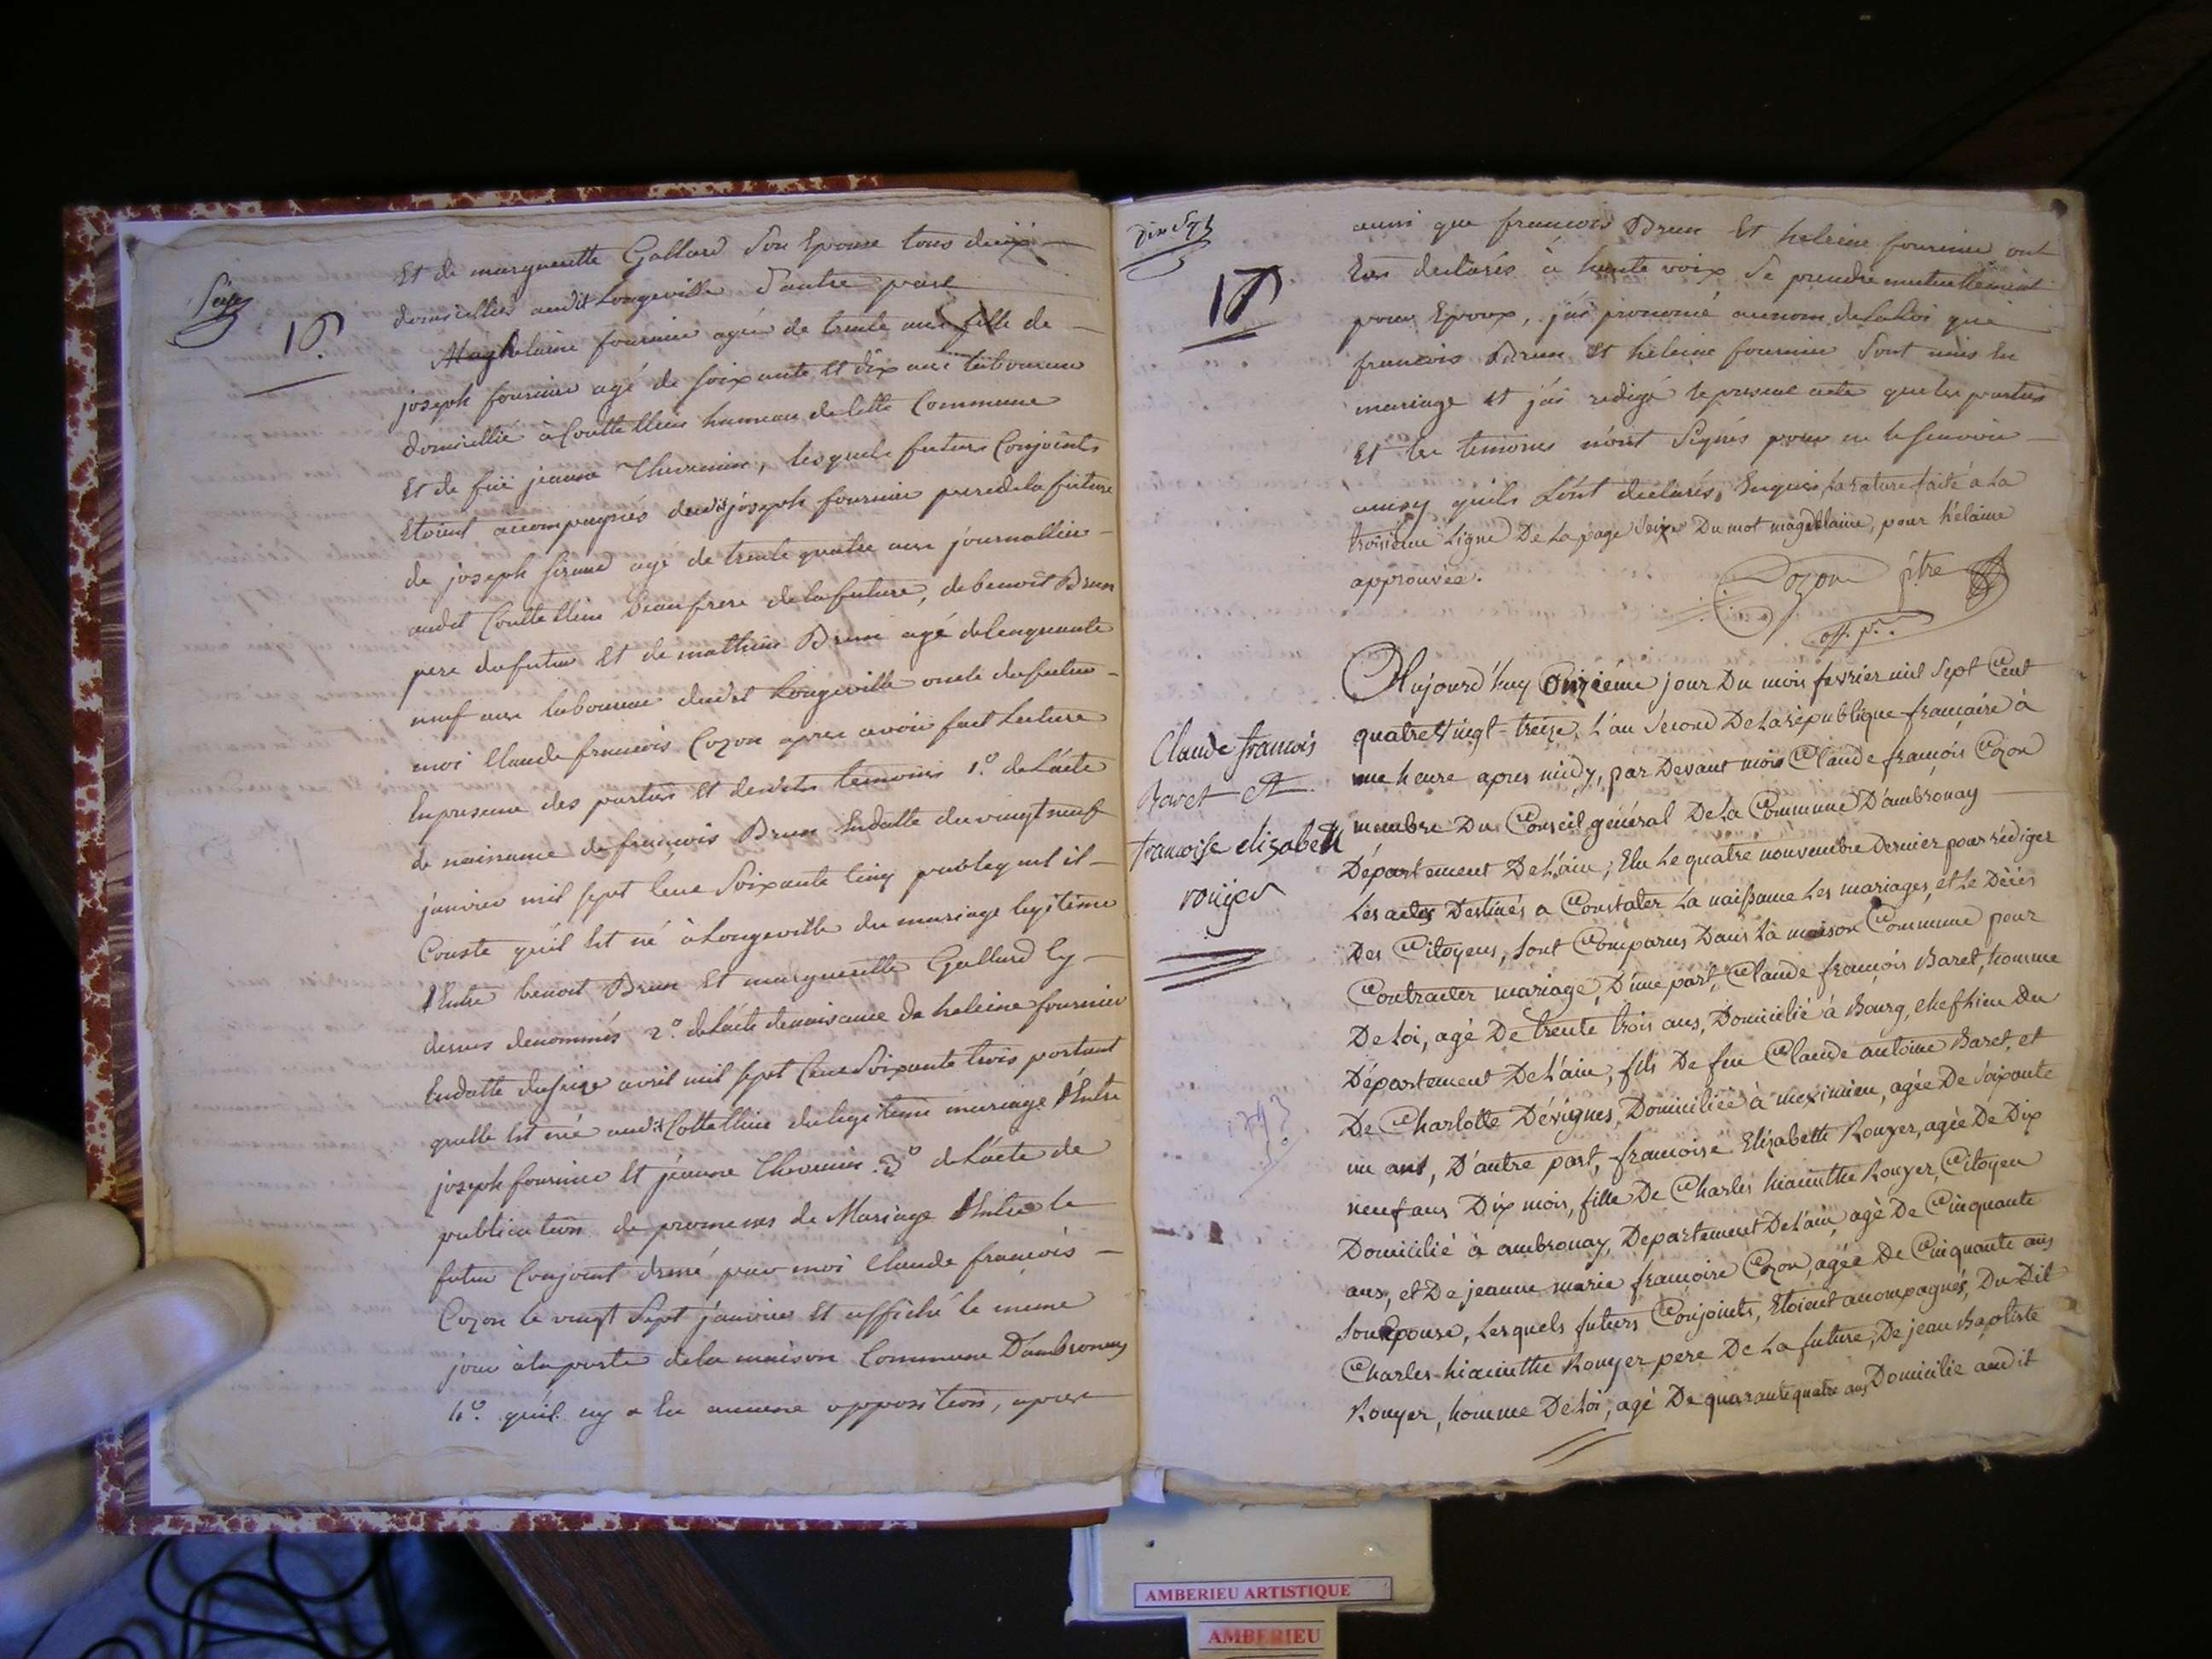 Seize
16.
Et de margueritte Gallard son Epouse tous deux
domiciliés audit Longeville d'autre part
helaine fournier agée de trente ans fille de
joseph fournier agé de soixante et dix ans laboureur
domicillié à Couttellieu hameau de cette Commune
Et de fuë jeanne Thevenin, lesquels futurs Conjoints
Etoient accompagnés dudit joseph fournier pere de la future
de joseph girand agé de trente quatre ans journallier
audit Couttellieu beaufrere de la future, de benoit Brun
pere du futur et de mathieu Brun agé de Cinquante
neuf ans laboureur dudit Longeville oncle du futur
moi Claude francois Cozon apres avoir fait Lecture
En presence des parties et desdits temoins 1.º de L'acte
de naissance de francois Brun En datte du vingt neuf
janvier mil sept Cent soixante Cinq par lequel il
Conste qu'il Est né à Longeville du mariage legitime
Entre benoit Brun Et margueritte Gallard Cy
dessus denommés 2.º de L'acte de naissance de heleine fournier
En datte du seize avril mil sept Cent soixante trois portant
qu'elle Est née audit Cottellieu du legitime mariage Entre
joseph fournier Et jeanne Thevenin 3º de L'acte de
publication de promesses de Mariage Entre le
futur Conjoint dressé par moi Claude francois
Cozon le vingt Sept janvier Et affiché le meme
jour à la porte de la maison Commune D'ambronay
4º. qu'il ny a Eu aucune opposition, apres
Dix Sept
17
aussi que francois Brun Et heleine fournier ont
Eus declarés à haute voix Se prendre mutuellement
pour Epoux, j'ai prononcé au nom de la Loi que
francois Brun Et heleine fournier Sont unis En
mariage Et j'ai redigé le present acte que les parties
Et les temoins n'ont Signés pour ne le scavoir
ainsy qu'ils L'ont declarés, Enquis La rature faite à La
troisieme Ligne De La page Seize Du mot magdelaine, pour hélaine
approuvée.
Cozon ptre
off. p.
Claude francois
Baret et
francoise elizabeth
rouyer
1793
Aujourd'huy Onzième jour Du mois fevrier mil Sept Cent
quatre Vingt-treize, L'an second De La république française à
une heure apres midy, par Devant moi Claude françois Cozon
membre Du Conseil général De La Commune D'ambronay
Département De L'ain; Elu Le quatre nouvembre Dernier pour rédiger
Les actes Destinés a Constater La naissance Les mariages, et Le Décès
Des Citoyens, sont Comparus Dans La maison Commune pour
Contracter mariage, D'une part, Claude françois Baret, homme
De Loi, agé De trente trois ans, Domicilié à Bourg, chef lieu Du
Département De L'ain, fils De feu Claude antoine Baret, et
De Charlotte Dévignes, Domiciliée à meximieu, agée De soixante
un ans, D'autre part, francoise Elizabette Rouyer, agée De Dix
neuf ans Dix mois, fille De Charles hiacinthe Rouyer, Citoyen
Domicilié à ambronay, Departement De L'ain, agé De Cinquante
ans, et De jeanne marie francoise Cozon, agée De Cinquante ans
son Epouse, Lesquels futurs Conjoints, Etoient acompagnés, Du Dit
Charles hiacinthe Rouyer pere De La future, De jean Baptiste
Rouyer, homme De Loi, agé De quarante quatre ans Domicilié audit
AMBERIEU ARTISTIQUE
AMBERIEU